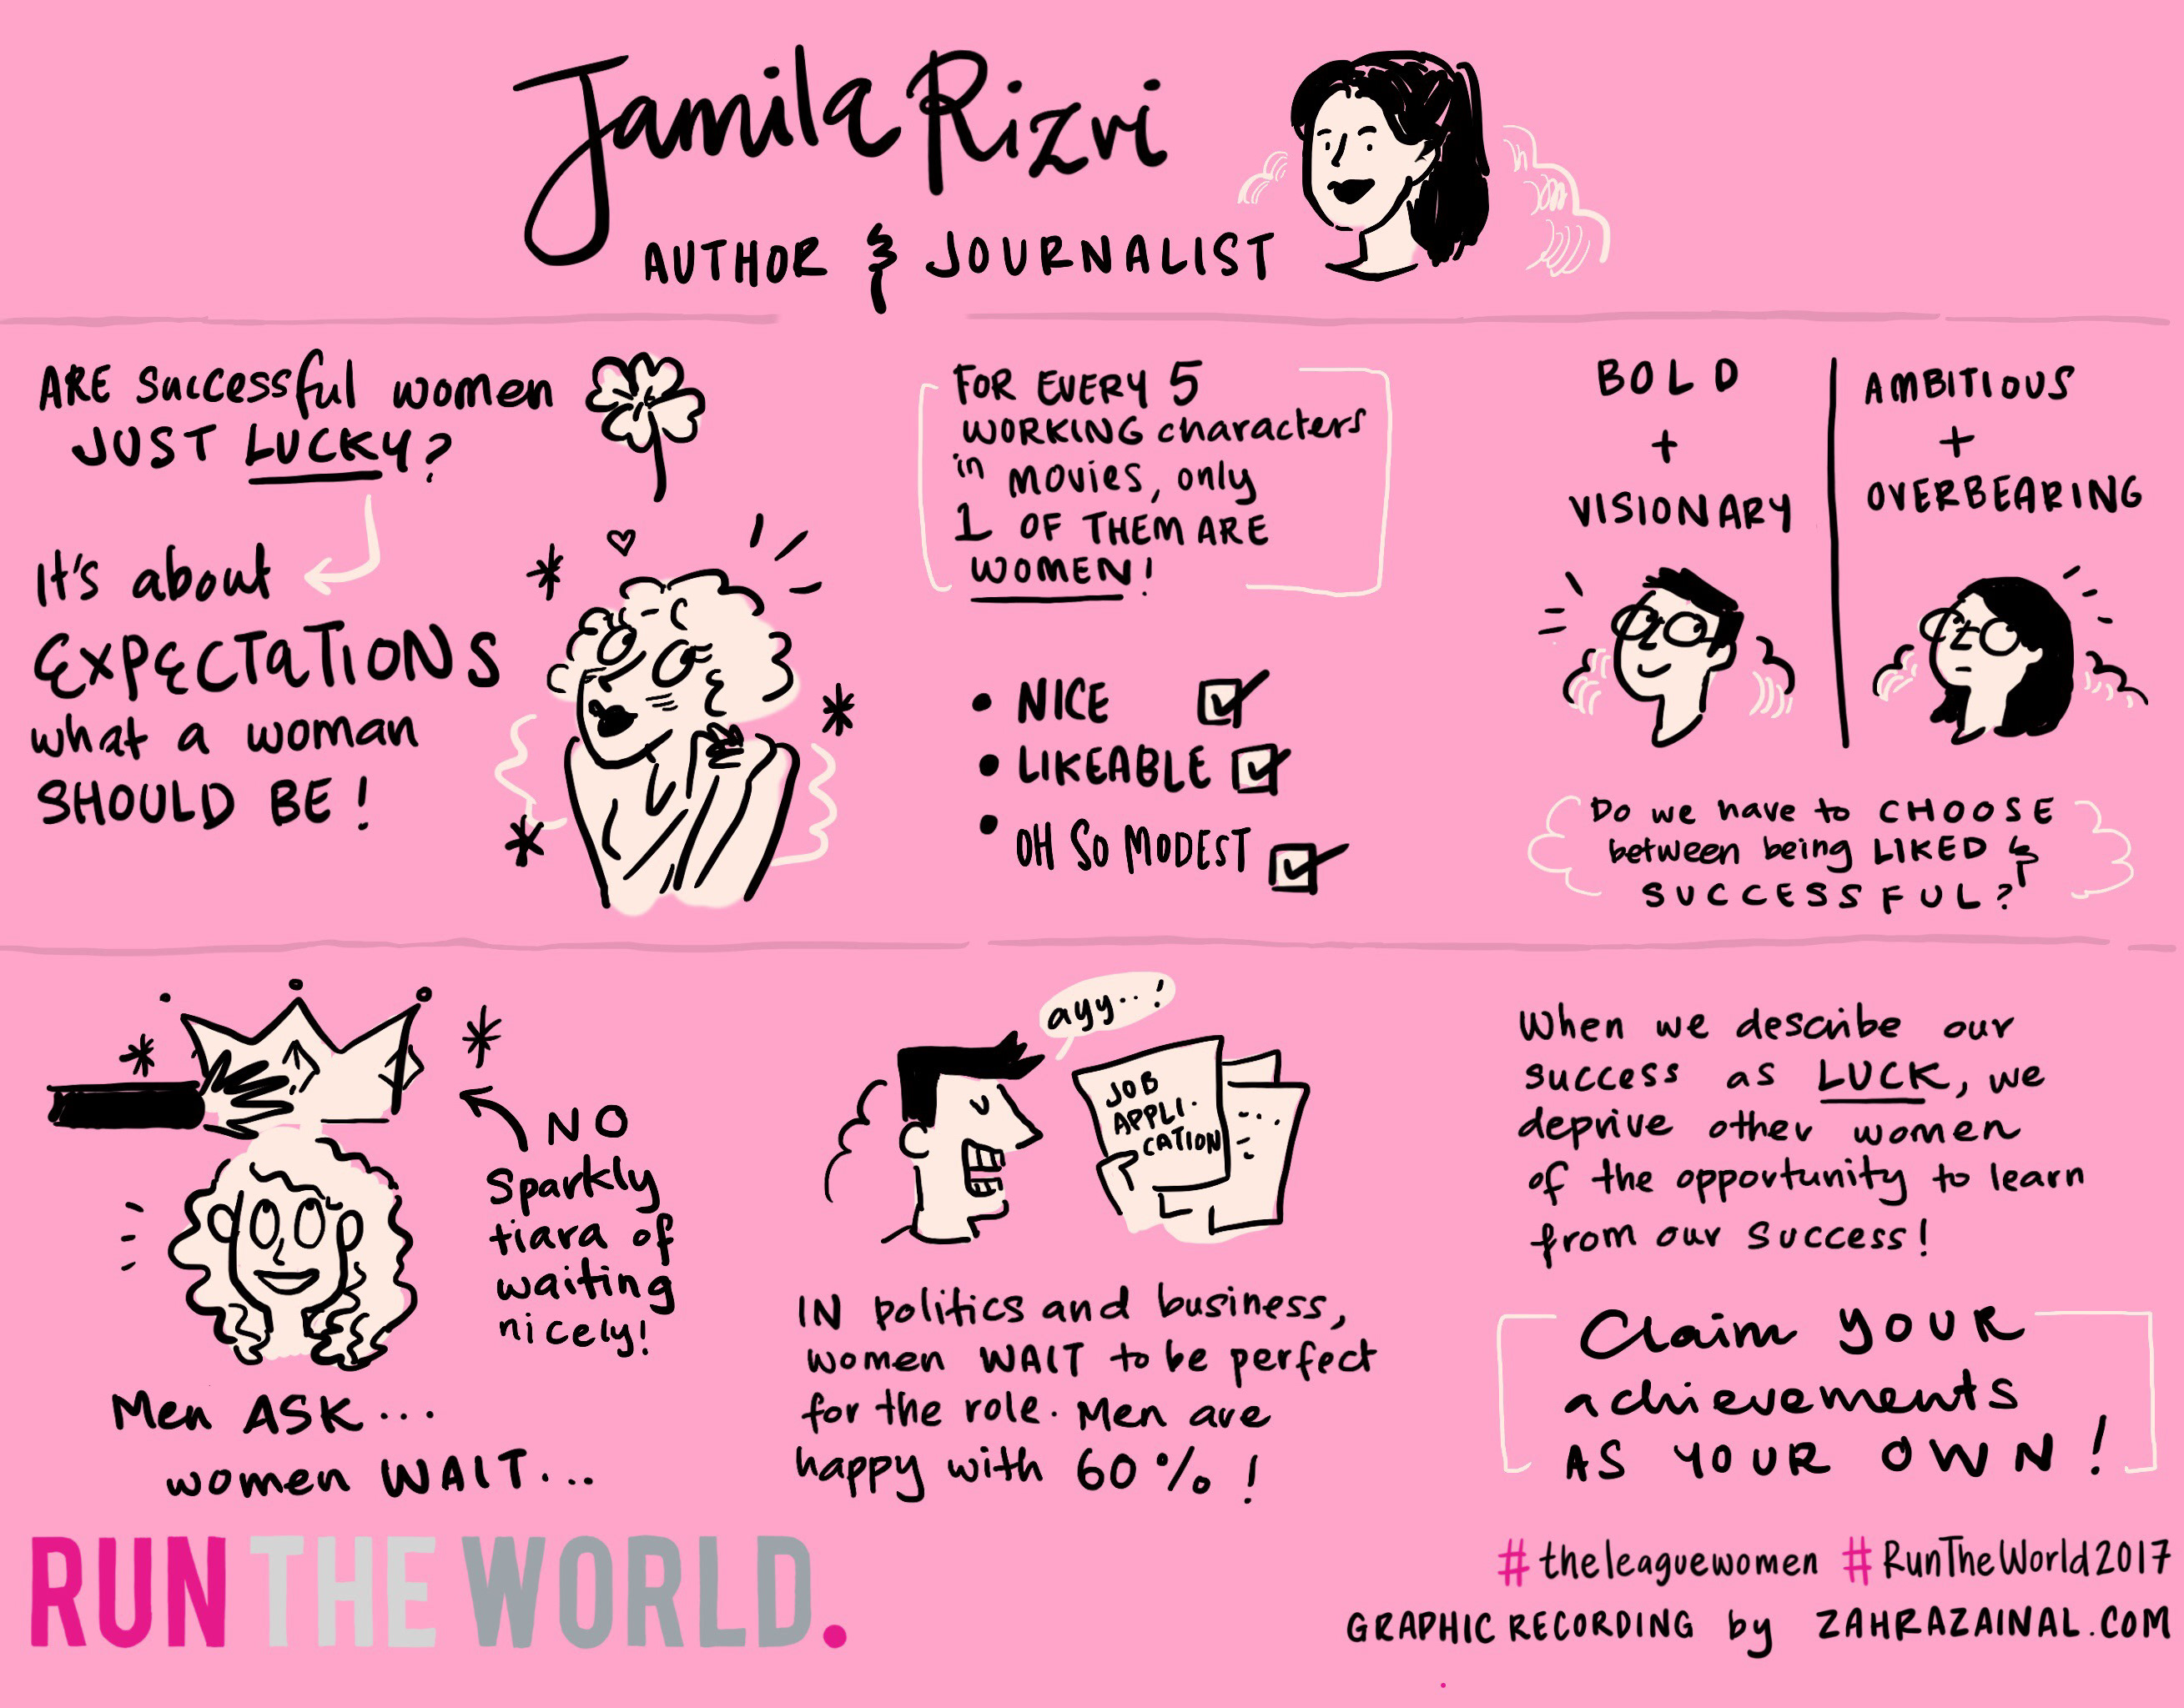 Jamila Rizvi
AUTHOR & JOURNALIST
ARE successful women
JUST LUCKY?
It's about
EXPECTATIONS
what a woman
SHOULD BE!
FOR EVERY 5
WORKING characters
in movies, only
1 OF THEM ARE
WOMEN!
• NICE
• LIKEABLE
• OH SO MODEST
BOLD
+
VISIONARY
AMBITIOUS
+
OVERBEARING
Do we have to CHOOSE
between being LIKED &
SUCCESSFUL?
NO
sparkly
tiara of
waiting
nicely!
Men ASK...
women WAIT...
ayy...!
JOB
APPLI-
CATION
IN politics and business,
women WAIT to be perfect
for the role. Men are
happy with 60%!
When we describe our
success as LUCK, we
deprive other women
of the opportunity to learn
from our success!
Claim YOUR
achievements
AS YOUR OWN!
RUN THE WORLD.
#theleaguewomen #RunTheWorld2017
GRAPHIC RECORDING by ZAHRAZAINAL.COM